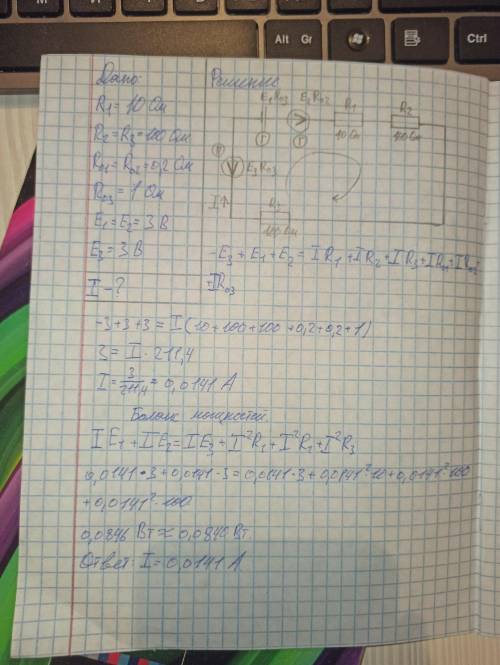 Alt Gr
Ctrl
Дано:
Решение
R1 = 10 Ом
R2 = R3 = 100 Ом
R01 = R02 = 0,2 Ом
R03 = 1 Ом
E1 = E2 = 3 В
E3 = 3 В
I - ?
R1
R2
10 Ом
100 Ом
E3 R03
I↑
100 Ом
-E3 + E1 + E2 = IR1 + IR2 + IR3 + IR01 + IR02
+IR03
-3+3+3 = I(10+100+100+0,2+0,2+1)
3 = I · 211,4
I = 3/211,4 = 0,0141 А
Баланс мощностей
IE1 + IE2 = IE3 + I²R1 + I²R1 + I²R3
0,0141·3+0,0141·3=0,0141·3+0,0141²·10+0,0141²·100
+0,0141²·100
0,0846 Вт ≈ 0,0840 Вт.
Ответ: I = 0,0141 А